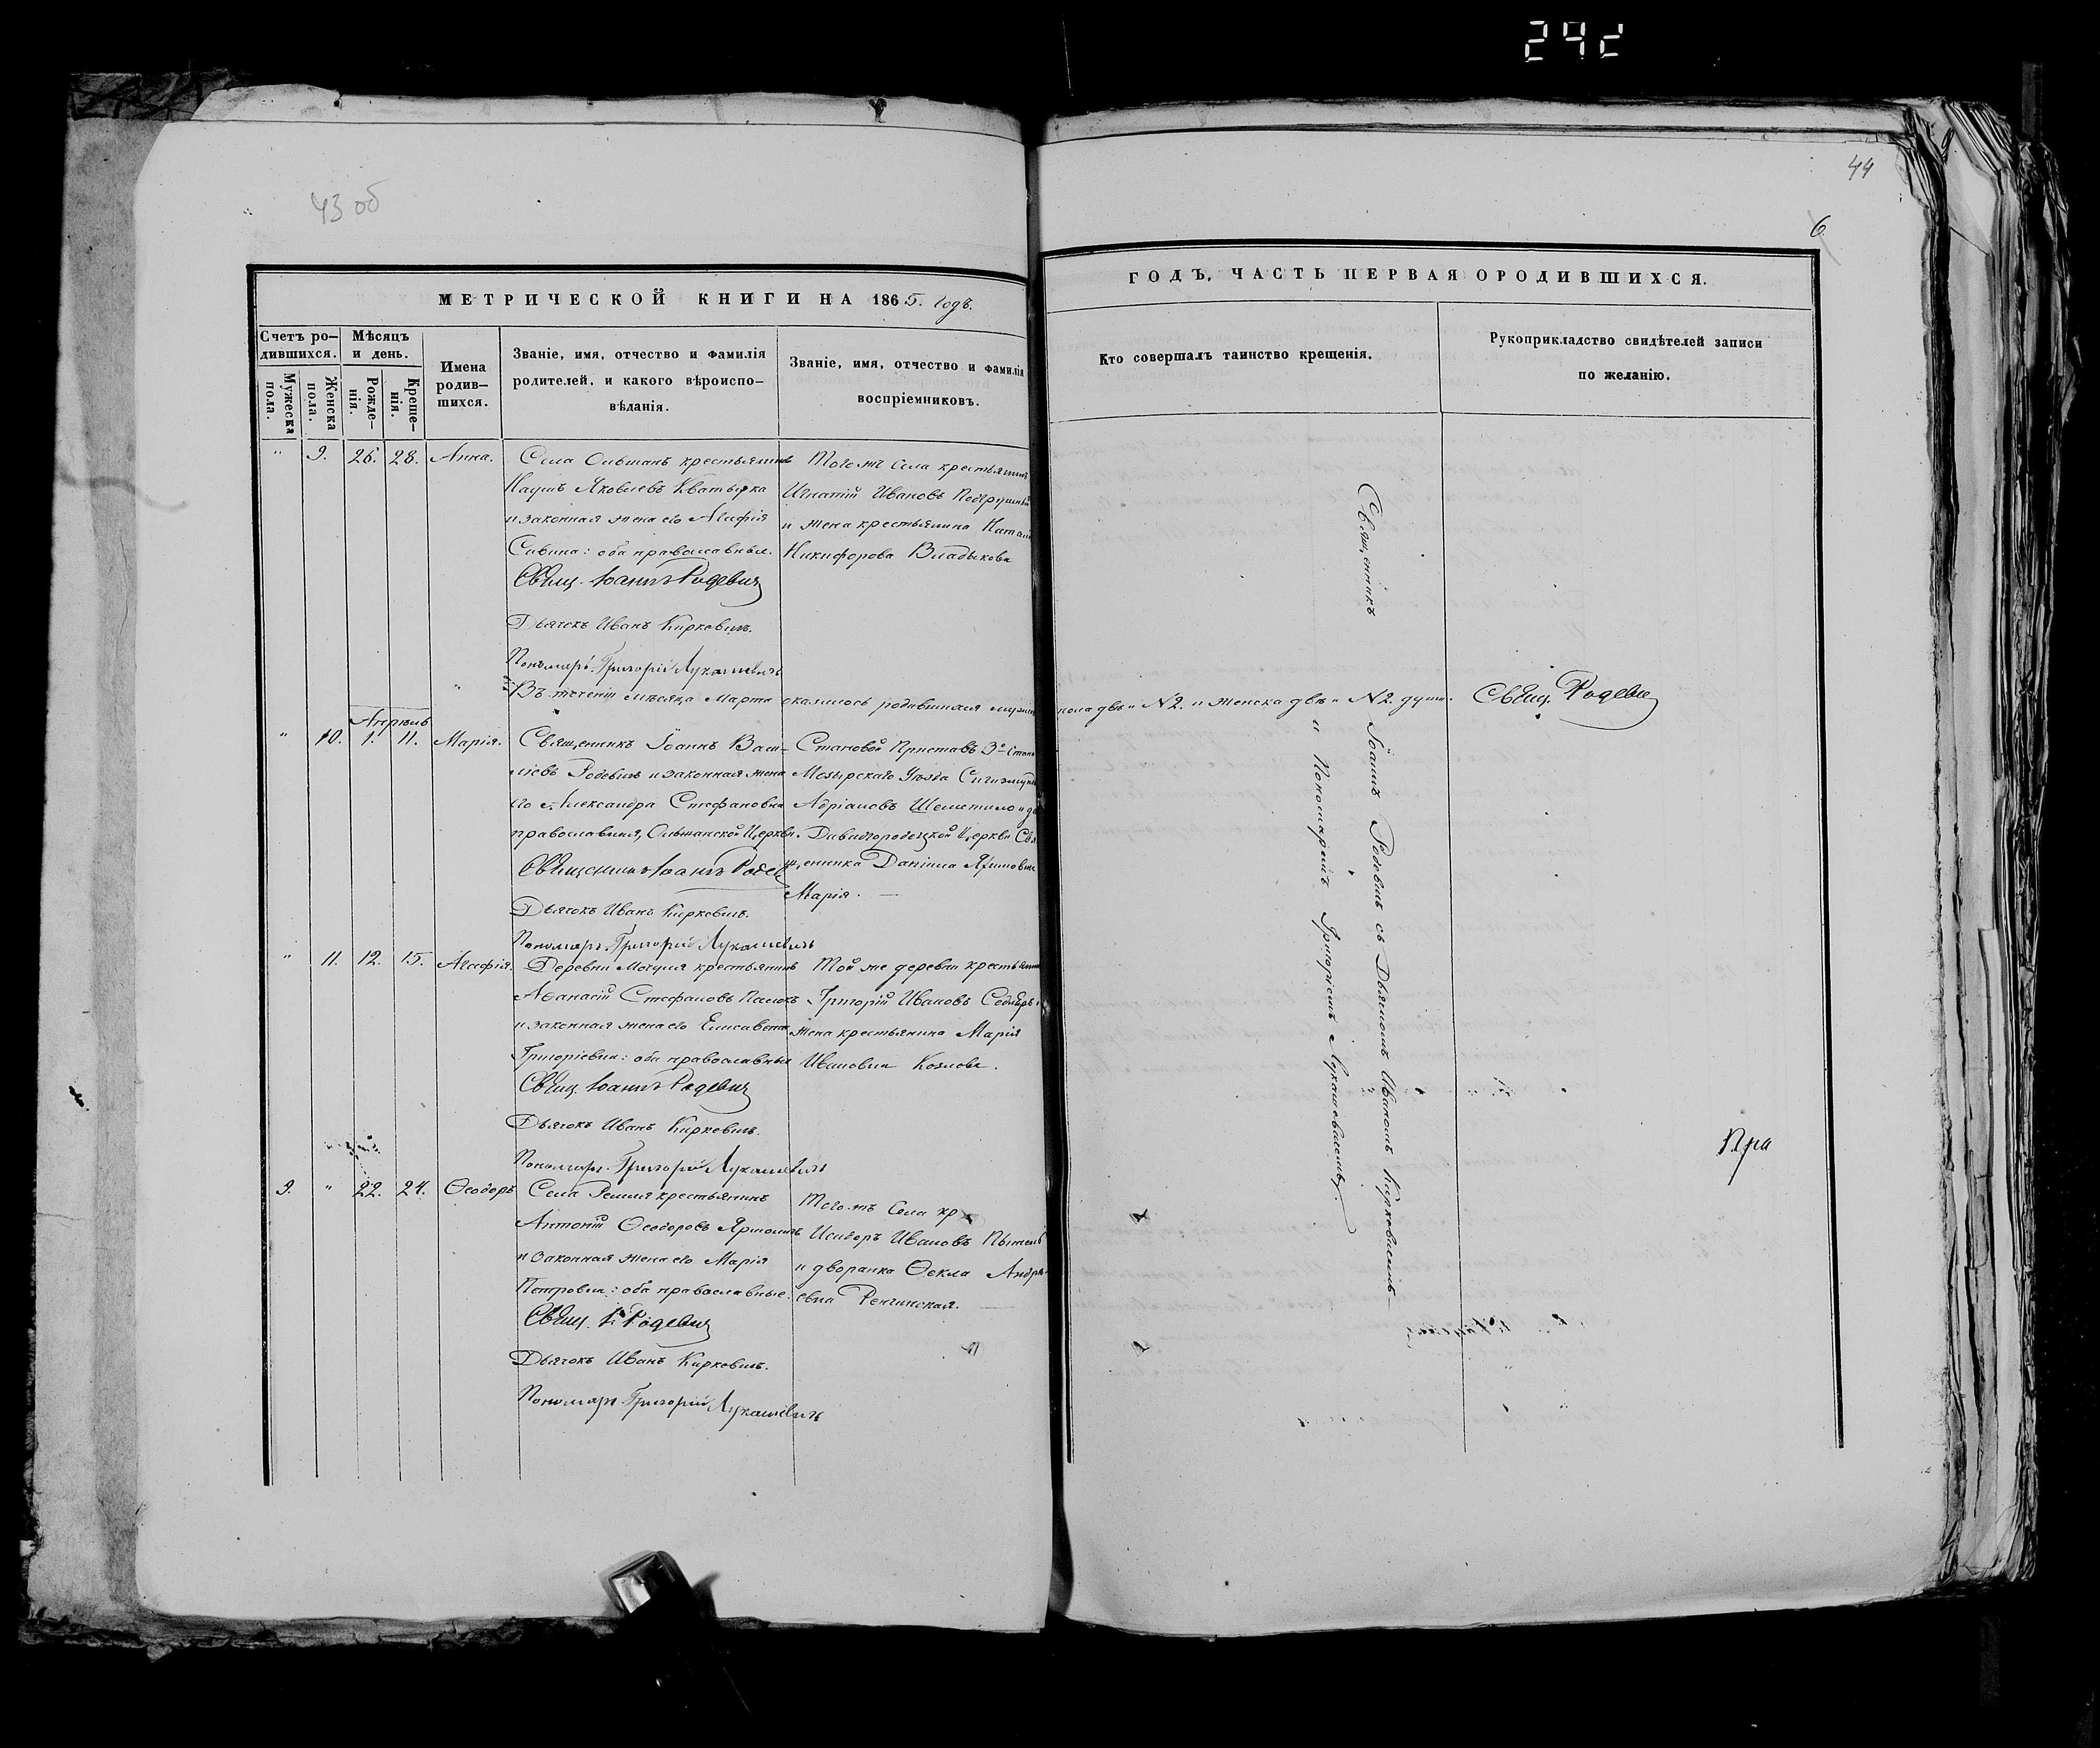 242
43 об
44
6
МЕТРИЧЕСКОЙ КНИГИ НА 1865. годъ.
ГОДЪ, ЧАСТЬ ПЕРВАЯ О РОДИВШИХСЯ.
Счетъ ро-
дившихся.
Мужеска
пола.
Женска
пола.
Мѣсяцъ
и день.
Рожде-
нія.
Креще-
нія.
Имена
родив-
шихся.
Званіе, имя, отчество и фамилія
родителей, и какого вѣроиспо-
вѣданія.
Званіе, имя, отчество и фамилія
воспріемниковъ.
Кто совершалъ таинство крещенія.
Рукоприкладство свидѣтелей записи
по желанію.
" 9. 26. 28. Анна.
Села Ольшанъ крестьянинъ
Наумъ Яковлевъ
и законная жена его Агафія
Савина: оба православные.
Свящ. Іоаннъ Родевич
Дьячокъ Иванъ Киркевичъ.
Пономарь Григорій Лукашевичъ
Того жъ села крестьянинъ
Игнатій Ивановъ
и жена крестьянина
Никифорова Владыкова
Въ теченіи мѣсяца Марта оказалось родившихся
пола двѣ № 2. и женска двѣ № 2. души.
Свящ. Родевич
Апрѣль
" 10. 1. 11. Марія.
Священникъ Іоаннъ Васи-
ліевъ Родевичъ и законная жена
его Александра Стефановна
православныя, Ольшанской Церкви.
Священникъ Іоаннъ
Дьячокъ Иванъ Киркевичъ.
Пономарь Григорій Лукашевичъ
Становой Приставъ 3го стана
Мозырскаго Уѣзда
Адріановъ
Давидгородецкой Церкви Свя-
щенника Даніила
Марія.
" 11. 12. 15. Агафія.
Деревни крестьянинъ
Аѳанасій Стефановъ
и законная жена его Елисавета
Григоріевна: оба православные
Свящ. Іоаннъ Родевич
Дьячокъ Иванъ Киркевичъ.
Пономарь Григорій Лукашевичъ
Той же деревни
Григорій Ивановъ
жена крестьянина Марія
Ивановна Козлова.
9. " 22. 24. Ѳеодоръ
Села крестьянинъ
Антоній Ѳеодоровъ
и законная жена его Марія
Петровна: оба православные.
Свящ. І. Родевич
Дьячокъ Иванъ Киркевичъ.
Пономарь Григорій Лукашевичъ
Того жъ Села кр
Исидоръ Ивановъ
и дворянка Ѳекла Андре-
евна
Священникъ Іоаннъ Родевичъ съ Дьячкомъ Иваномъ Киркевичемъ
и Пономаремъ Григоріемъ Лукашевичемъ.
Пра